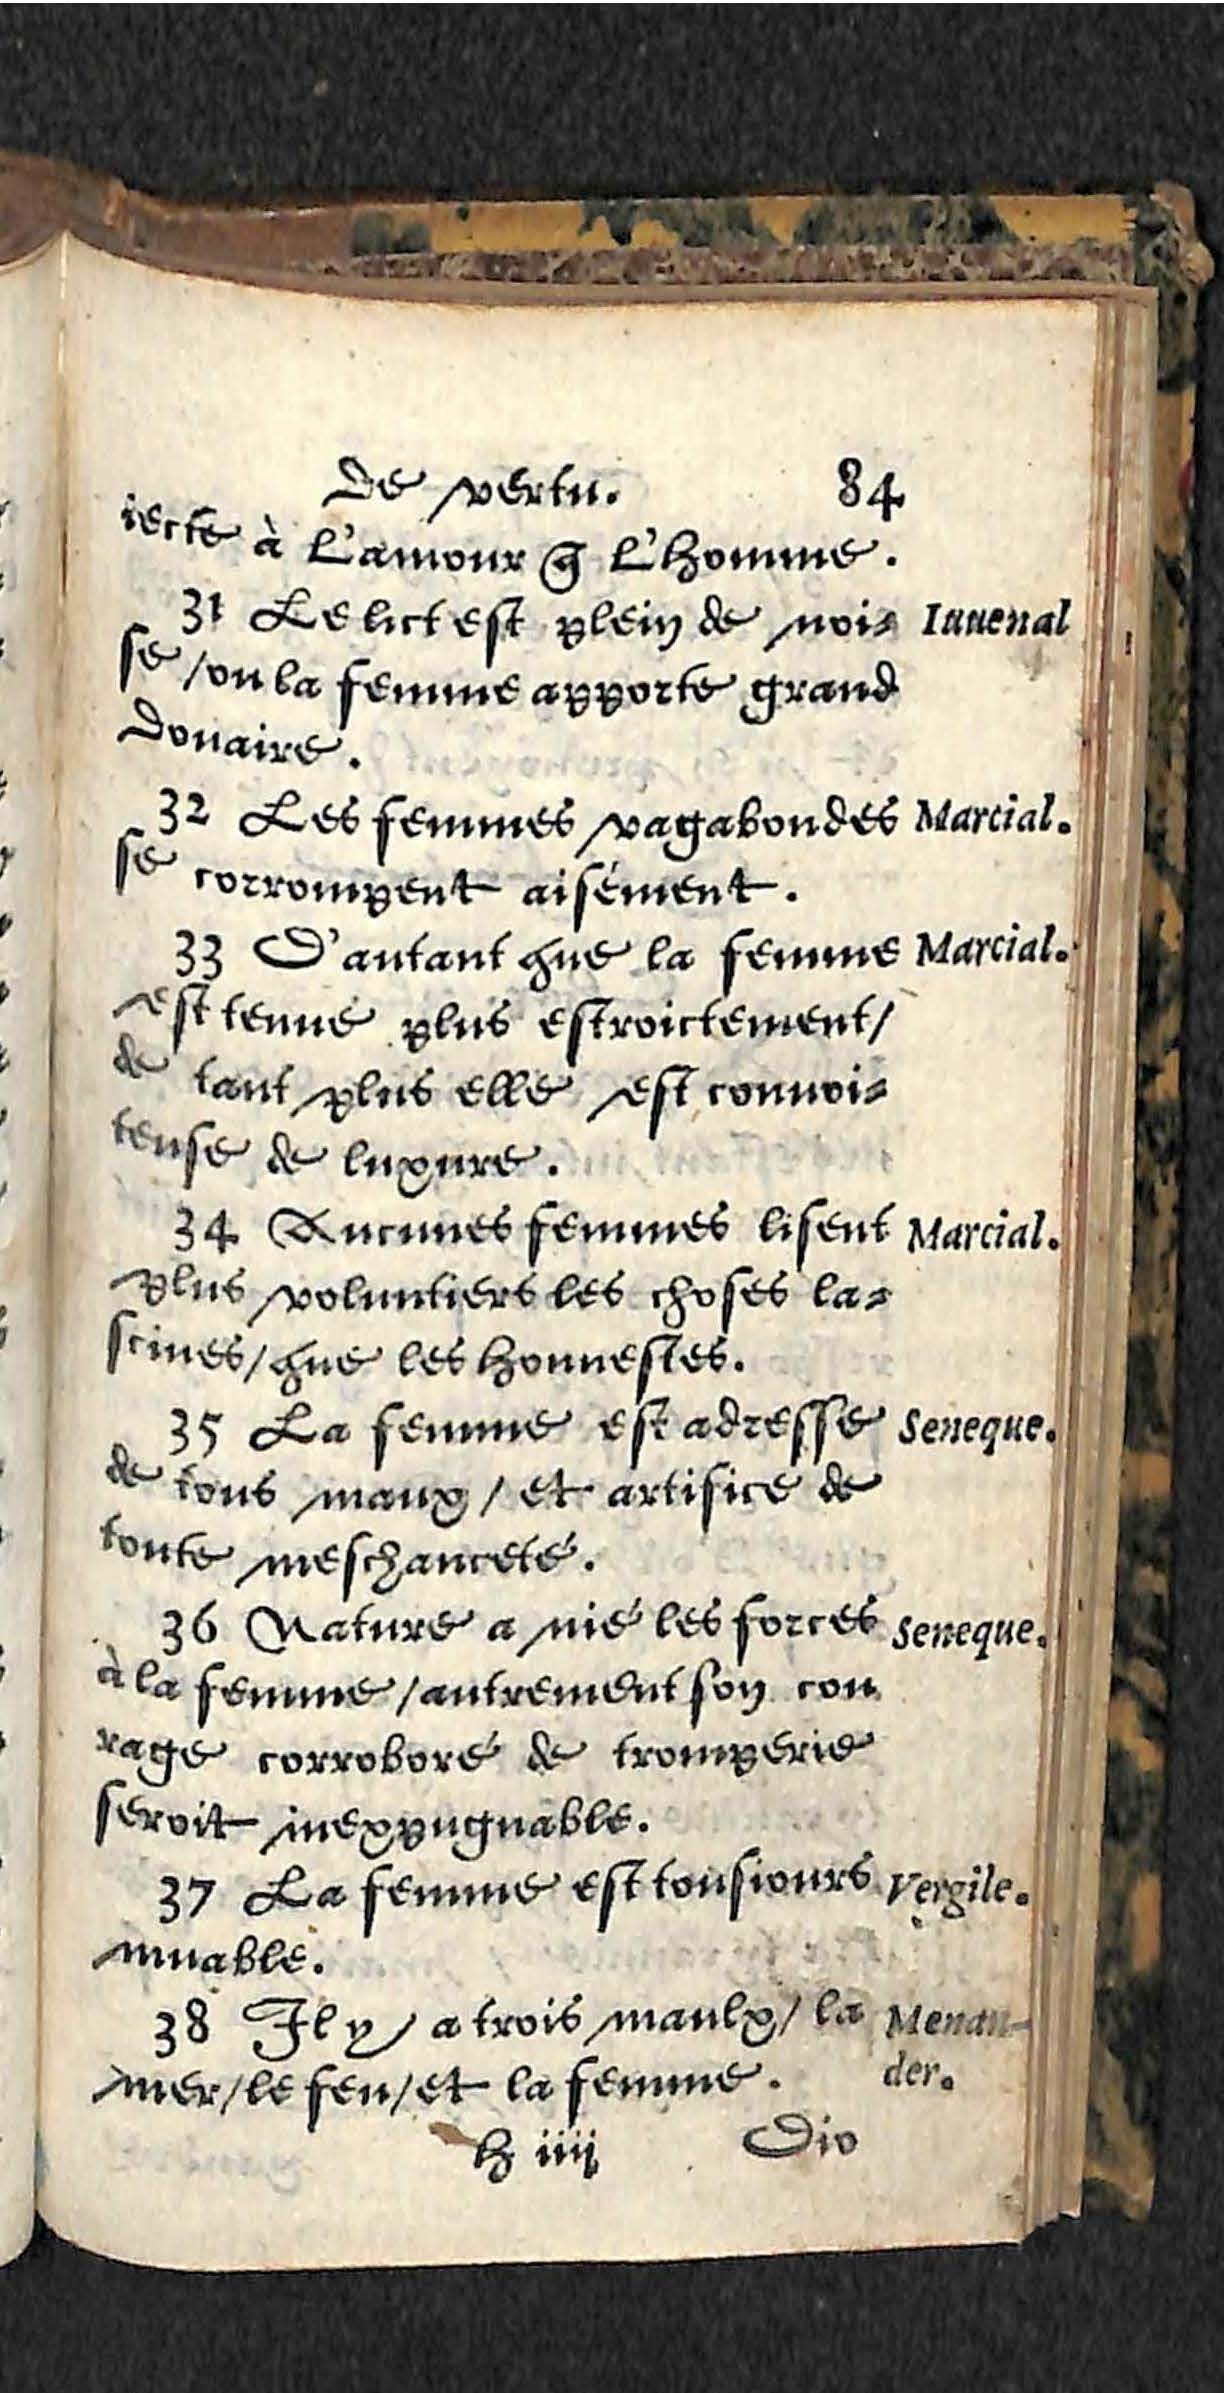 de vertu. 84
iecte à l'amour q̃ l'homme.
31 Le lict est plein de noi= Iuuenal
se / ou la femme apporte grand
douaire.
32 Les femmes vagabondes Marcial.
se corrompent aisément.
33 D'autant que la femme Marcial.
est tenue plus estroictement /
de tant plus elle est conuoi=
teuse de luxure.
34 Aucunes femmes lisent Marcial.
plus voluntiers les choses la=
sciues / que les honnestes.
35 La femme est adresse Seneque.
de tous maux / et artifice de
toute meschanceté.
36 Nature a nié les forces Seneque.
à la femme / autrement son cou
rage corroboré de tromperie
seroit inexpugnable.
37 La femme est tousiours Vergile.
muable.
38 Il y a trois maulx / la Menan-
mer / le feu / et la femme. der.
h iiij Dio